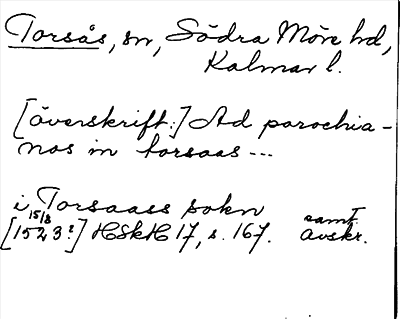 Torsås, sn, Södra Möre hd,
Kalmar l.
[överskrift:] Ad parochia-
nos in torsaas ---
i Torsaass sokn
15/8 samt.
[1523?] HSkH 17, s. 167. avskr.